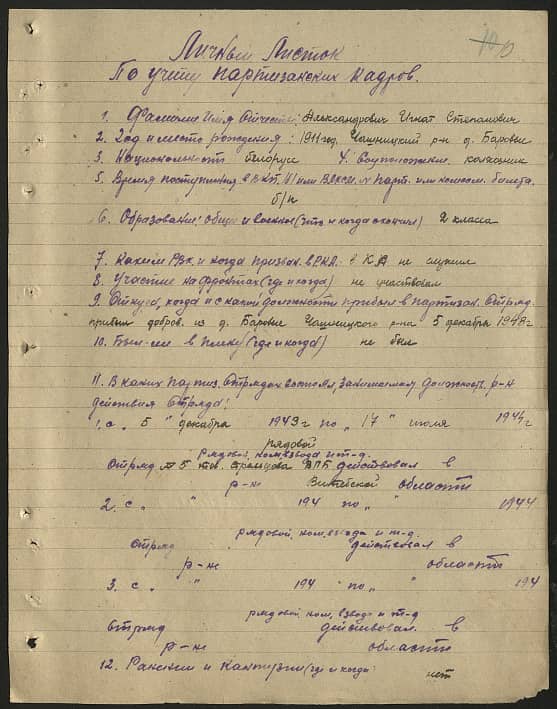 Личный Листок
По учету партизанских кадров.
1. Фамилия Имя Отчество: Александрович Игнат Степанович
2. Год и место рождения: 1911 год, Чашницкий р-н д. Баровые
3. Национальность белорус 4. Соцположение колхозник
5. Время поступления в ВКП/б/ или ВЛКСМ, № парт. или комсом. билета.
б/п
6. Образование: общее и военное (что и когда окончил) 2 класса
7. Каким РВК и когда призван в РККА. в КА не служил
8. Участие на фронтах (где и когда) не участвовал
9. Откуда, когда и с какой должности прибыл в партизан. Отряд.
прибыл добров. из д. Баровые Чашницкого р-на 5 декабря 1943 г
10. Был-ли в плену (где и когда) не был
11. В каких партиз. Отрядах состоял, занимаемая должность, р-н
действия Отряда:
1. с „ 5 " декабря 1943 г по „ 17 " июля 1944 г
рядовой
рядовой, ком. взвода и т-д.
Отряд № 5 тов. ВПБ действовал в
р-не Витебской области
2. с „ " 194 по „ " 1944
рядовой, ком, взвода и т-д.
Отряд действовал в
р-не области
3. с „ " 194 по „ " 194
рядовой, ком, взвода и т-д
Отряд действовал. в
р-не области
12. Ранения и Контузии (где и когда) нет